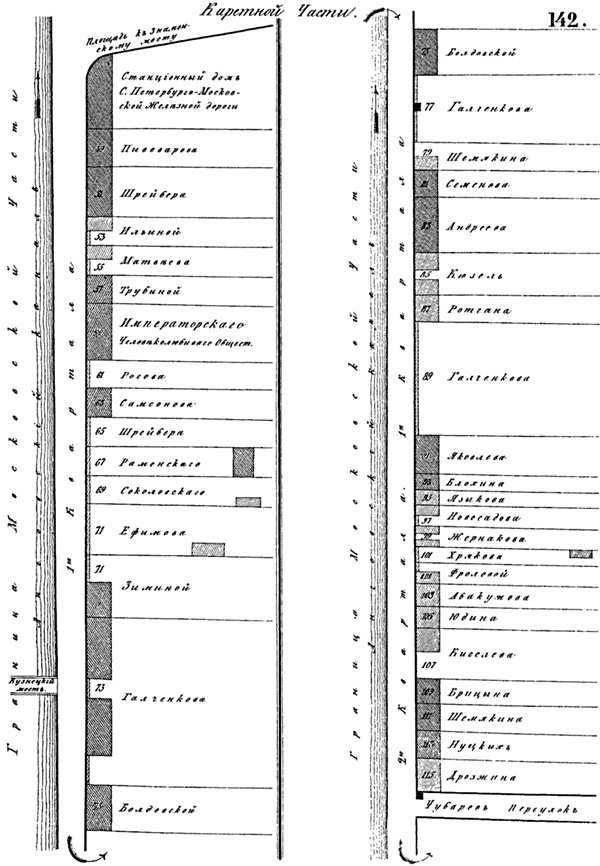 Каретной Части.
142.
Площадь къ Знамен-
скому мосту
Станціонный домъ
С. Петербурго-Москов-
ской Желѣзной дороги
Пивоварова
Шрейбера
Ильиной
53
Матвѣева
55
57 Трубиной
Императорскаго
Человѣколюбиваго Общест.
61 Росова
63 Самсонова
65 Шрейбера
67 Раменскаго
69 Соколовскаго
71 Ефимова
71
Зиминой
73
Галченкова
Болдовской
Граница Московской Части
Лиговскій каналъ
Кузнецкій
мостъ.
1й Квартала
75 Болдовской
77 Галченкова
79 Шемякина
81 Семенова
83 Андреева
85 Кюзель
87 Ротгана
89 Галченкова
91 Яковлева
93 Блохина
95 Языкова
97 Новосадова
99 Жернакова
101 Хрякова
Фроловой
103 Абакумова
105 Юдина
Киселева
107
109 Брицына
111 Шемякина
113 Нуцкихъ
115 Дрозжина
Чубаровъ Переулокъ
Граница Московской Части
Лиговскій каналъ
1й Квартала
2й Квартала.